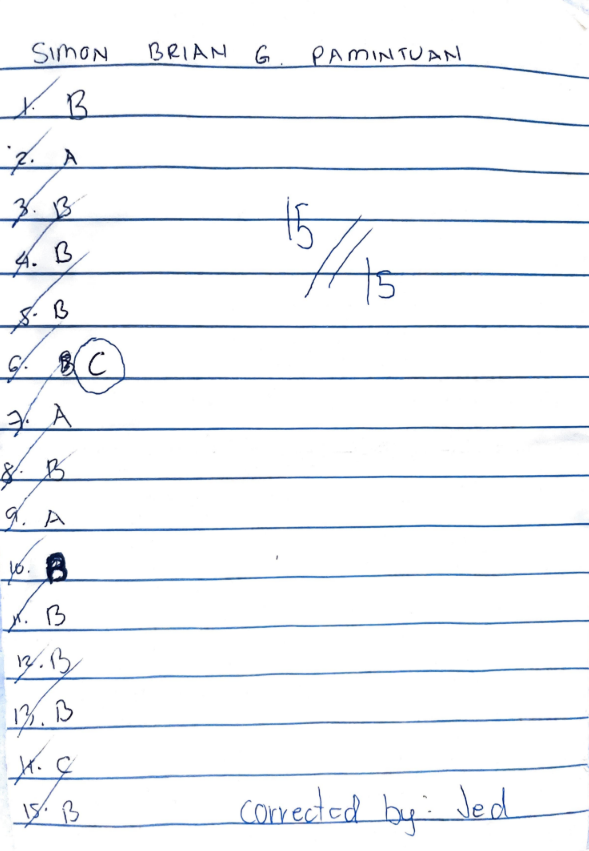 SIMON BRIAN G. PAMINTUAN
1. B
2. A
3. B
4. B
5. B
6. C
7. A
8. B
9. A
10. B
11. B
12. B
13. B
14. C
15. B
15 // 15
corrected by: Jed